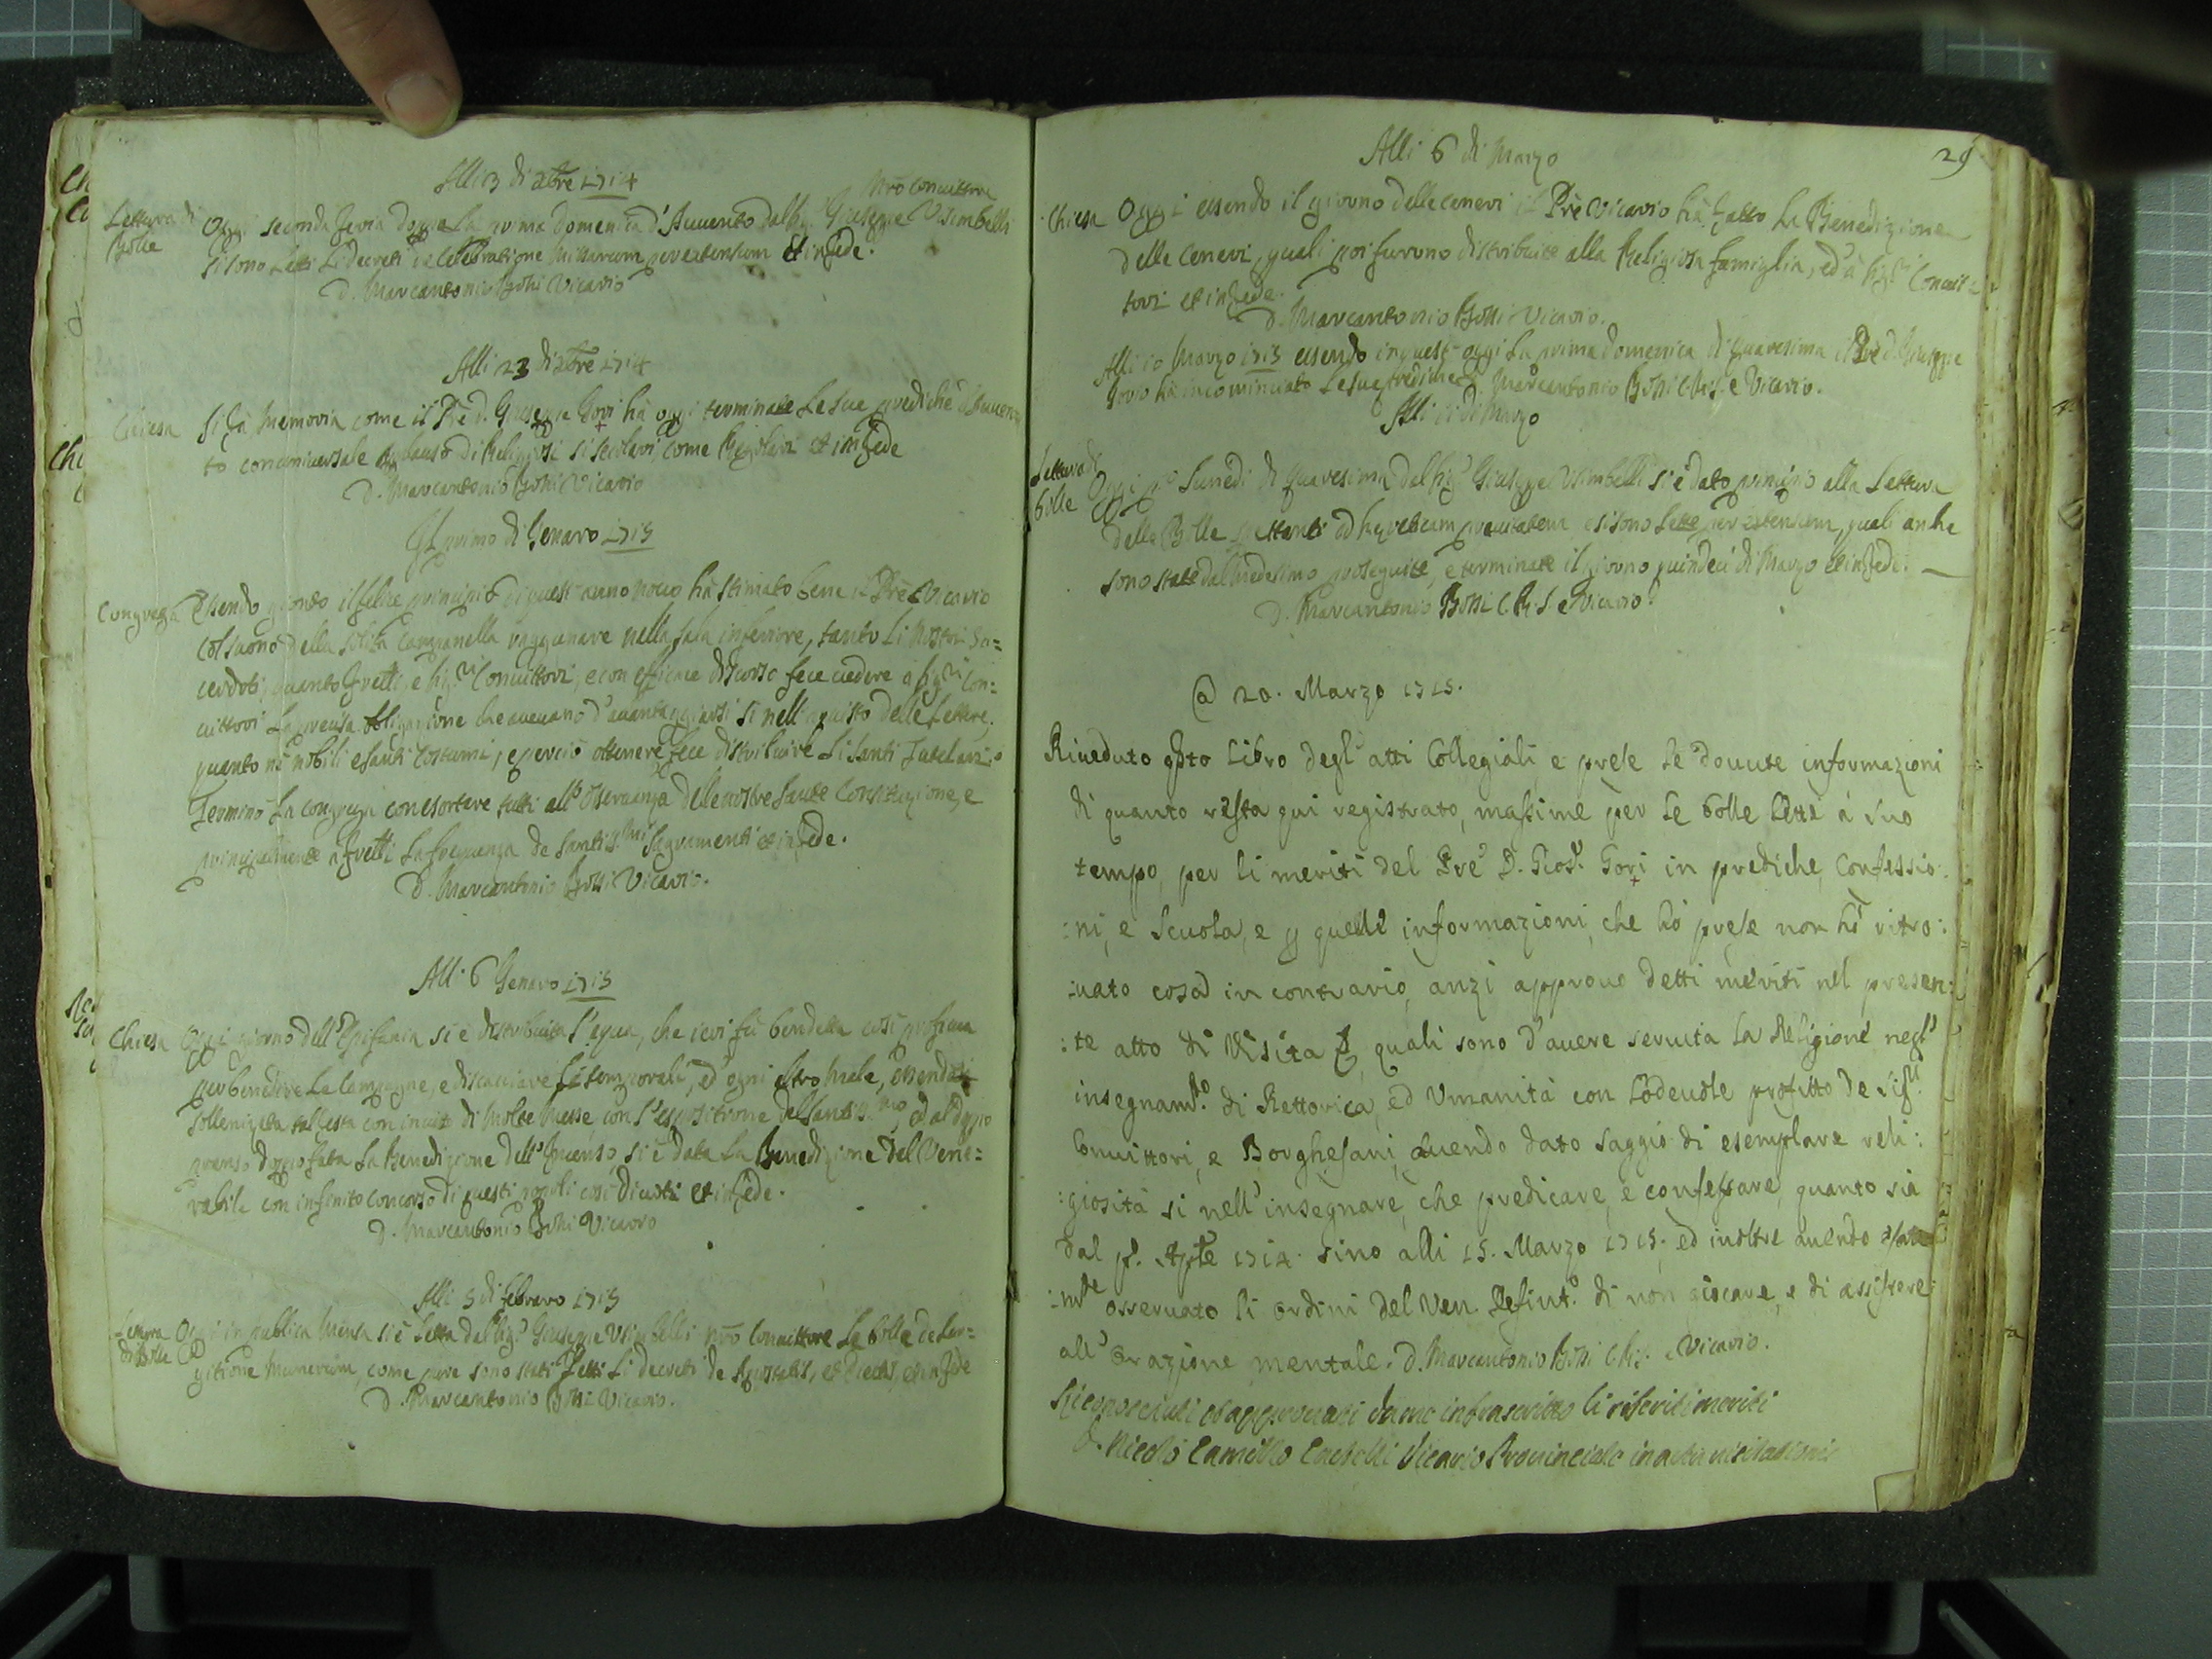 Alli 3 di Xbre 1714
nro Convittore
Lettura di Bolle
Oggi seconda feria doppo la prima domenica d'Avvento dal Sig. Giuseppe Usimbelli
si sono letti li decreti de Celebratione Missarum per extensum et in fede.
D. Marcantonio Vicario
Alli 23 di Xbre 1714
Chiesa
Si fà memoria come il Pre d. Giuseppe Gori hà oggi terminate le sue prediche d'Avven
to con universale applauso di Religiosi si secolari, come Regolari et in fede
D. Marcantonio Vicario
Il primo di Genaro 1715
Congrega
Essendo gionto il felice principio di quest'anno novo hà stimato bene il Pre Vicario
col suono della solita campanella raggunare nella sala inferiore, tanto li nostri Sa=
cerdoti, quanto fratti, e Sig.ri Convittori, e con efficace discorso fece vedere a Sig.ri Con:
vittori la precisa obligazione che avevano d'avantaggiarsi si nell'aquisto delle lettere,
quanto ne nobili e santi costumi, e perciò ottenere fece distribuire li Santi Tutelari.
Terminò la congrega con esortare tutti all'osservanza delle nostre sante Constituzione, e
principalmente a fratti la frequenza de Santiss.mi Sagramenti et in fede.
D. Marcantonio Vicario.
Alli 6 Genaro 1715
Chiesa
Oggi giorno dell'Epifania si è distribuita l'aqua, che ieri fù bendetta così proficua
per benedire le campagne, e discacciare li temporali, ed ogni altro male, essendosi
sollenizata tal festa con invito di molte messe con l'espositione del Santiss.mo, ed al doppo
pranso doppo fatta la Benedizione dell'Incenso, si è data la Benedizione del Vene=
rabile con infinito concorso di questi popoli così divoti et in fede.
D. Marcantonio Vicario
Alli 5 di Febraro 1715
Lettura di Bolle
Oggi in publica mensa si è letta dal Sig. Giuseppe Usimbelli nro Convittore la bolla de Lar=
gitione Munerum, come pure sono stati letti li decreti de Apostatis, et Eiectis, et in fede
D. Marcantonio Vicario.
29
Alli 6 di Marzo
Chiesa
Oggi essendo il giorno delle ceneri il Pre Vicario hà fatto la Benedizione
delle Ceneri, quali poi furono distribuite alla Religiosa famiglia, ed à Sig.ri Convit
tori et in fede.
D. Marcantonio Vicario.
Alli 10 Marzo 1715 essendo in quest'oggi la prima domenica di quaresima il Pre d. Giuseppe
Gorio hà incominciato le sue prediche D. Marcantonio C.R.S. e Vicario.
Alli 11 di Marzo
Lettura di bolle
Oggi p.o Lunedi di quaresima dal Sig. Giuseppe Usimbelli si è dato principio alla lettura
delle Bolle spettanti ad hereticam pravitatem, e si sono lette per extensum, quali anche
sono state dal medesimo proseguite, e terminate il giorno quindeci di Marzo et in fede.
D. Marcantonio C.R.S. e Vicario.
@ 20. Marzo 1715.
Riveduto qsto libro degl'atti Collegiali, e prese le dovute informazioni
di quanto resta qui registrato, massime per le bolle lette à suo
tempo, per li meriti del Pre D. Gios. Gori in prediche, Confessio:
:ni, e Scuola, e p quelle informazioni, che hò prese non hò ritro:
:vato cosa in contrario, anzi approvo detti meriti nel presen:
:te atto di Visita, quali sono d'avere servita la Religione negl'
insegnam.to di Rettorica, ed Umanità con lodevole profitto de Sig.ri
Convittori, e Borghesani, avendo dato saggio di esemplare reli:
:giosità si nell'insegnare, che predicare, e confessare, quanto sia
dal p. Aple 1714. sino alli 15. Marzo 1715. ed inoltre avendo esatta
:m.te osservato li ordini del Ven. Definit.o di non giocare, e di assistere
all'orazione mentale. D. Marcantonio C.R.S. e Vicario.
Riconosciuti et approvati da me infrascritto li riferiti meriti
D. Nicolò Camillo Vicario Provinciale in actu visitationis